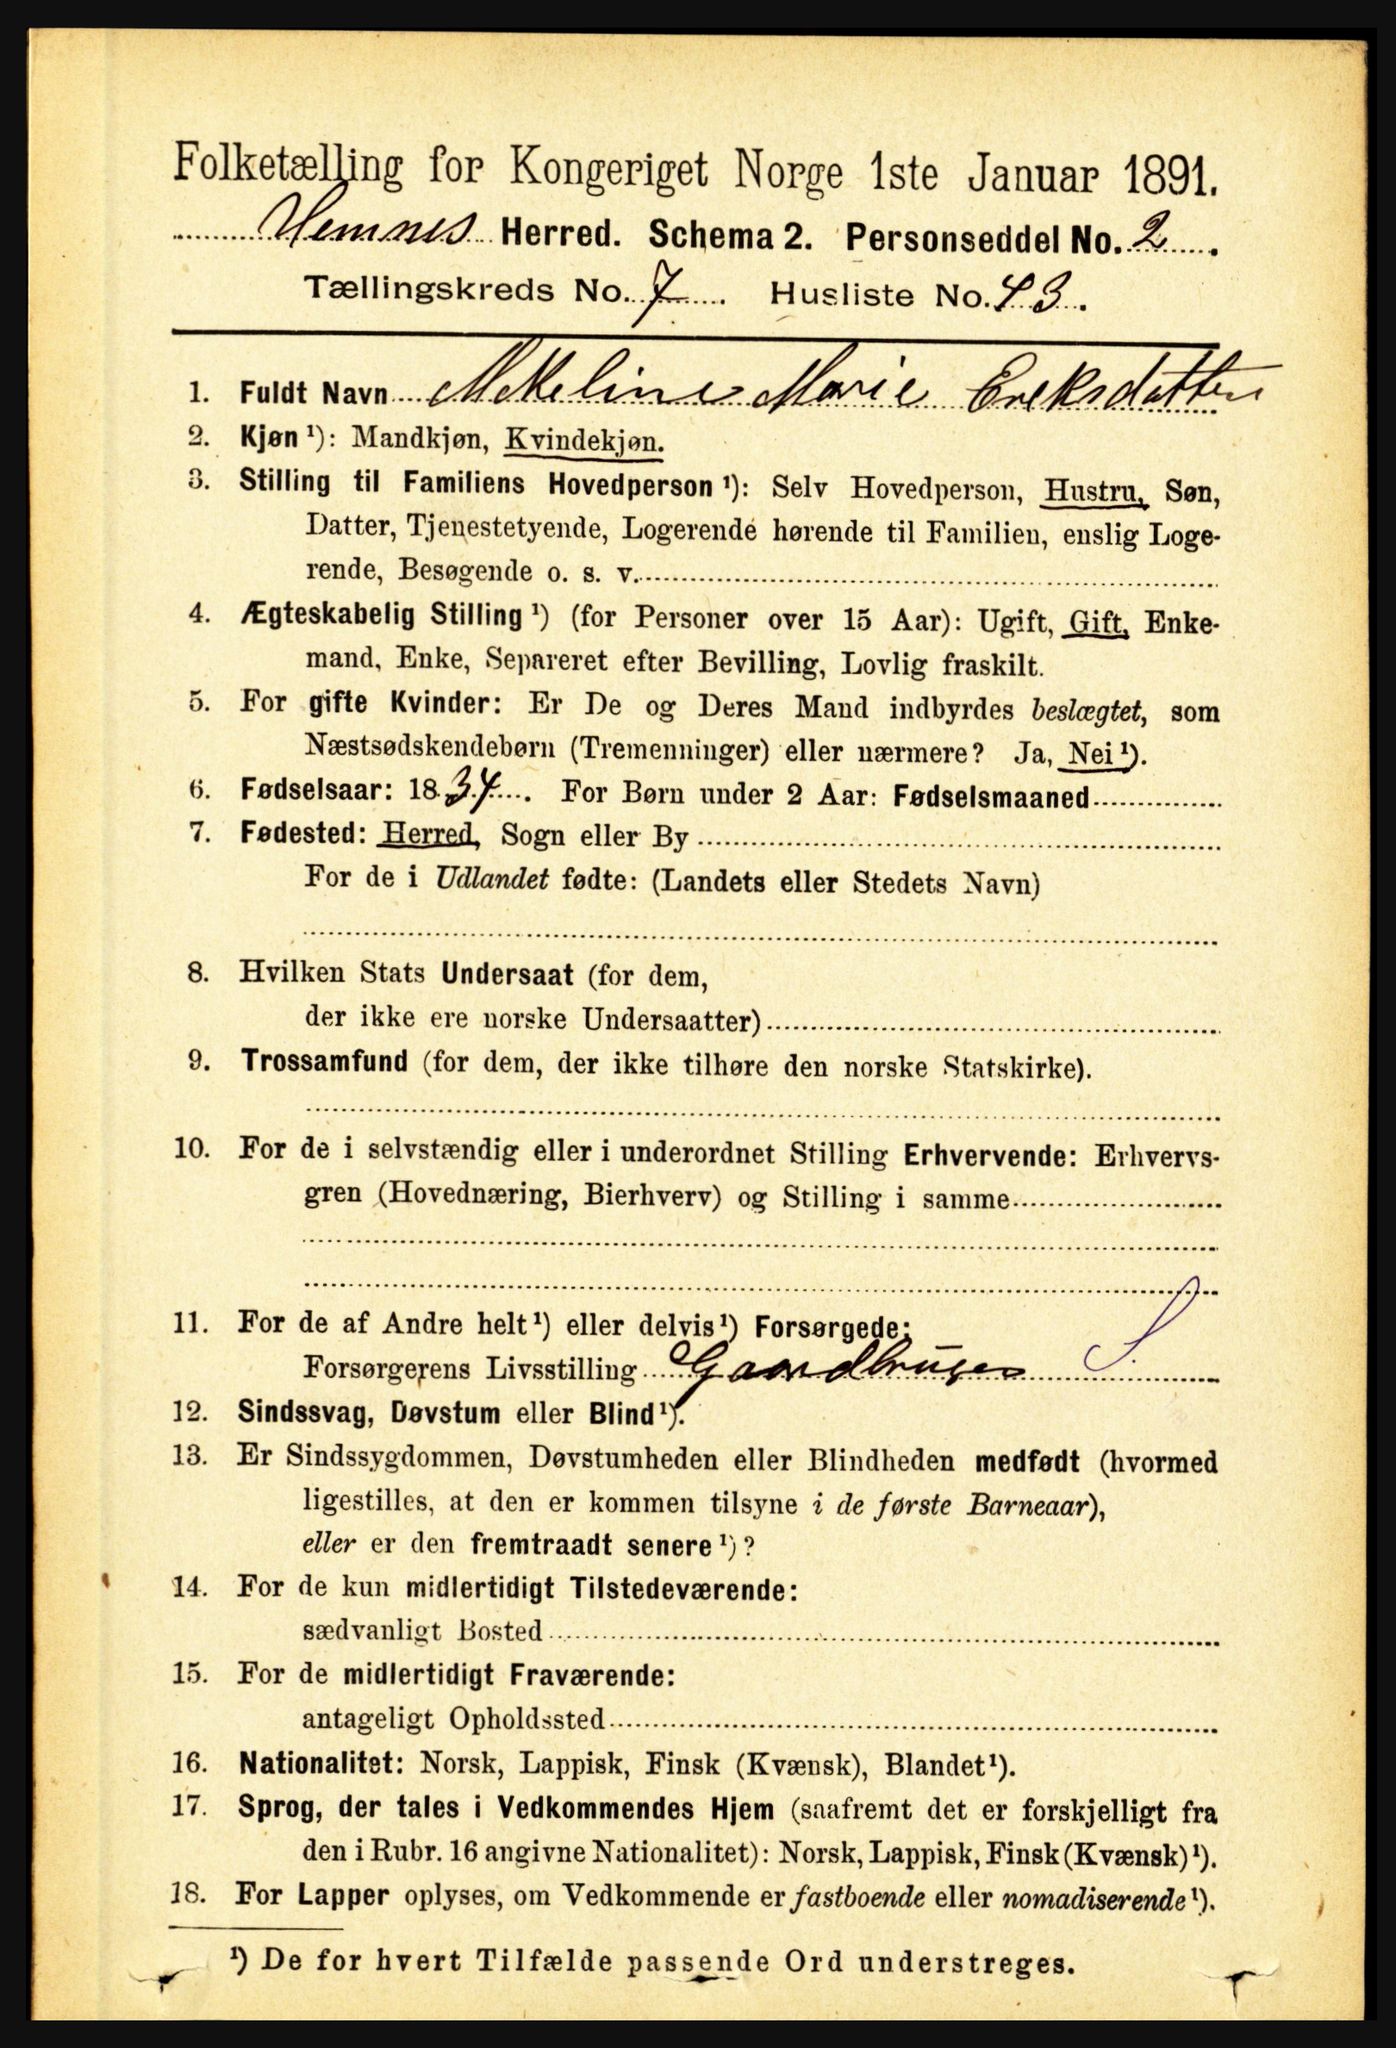 Folketælling for Kongeriget Norge 1ste Januar 1891.
Hemnes Herred. Schema 2. Personseddel No. 2.
Tællingskreds No. 7. Husliste No. 43.
1. Fuldt Navn Marie Ereksdatter
2. Kjøn ¹): Mandkjøn, Kvindekjøn.
3. Stilling til Familiens Hovedperson ¹): Selv Hovedperson, Hustru, Søn,
Datter, Tjenestetyende, Logerende hørende til Familien, enslig Loge-
rende, Besøgende o. s. v.
4. Ægteskabelig Stilling ¹) (for Personer over 15 Aar): Ugift, Gift, Enke-
mand, Enke, Separeret efter Bevilling, Lovlig fraskilt.
5. For gifte Kvinder: Er De og Deres Mand indbyrdes beslægtet, som
Næstsødskendebørn (Tremenninger) eller nærmere? Ja, Nei ¹).
6. Fødselsaar: 1834. For Børn under 2 Aar: Fødselsmaaned
7. Fødested: Herred, Sogn eller By
For de i Udlandet fødte: (Landets eller Stedets Navn)
8. Hvilken Stats Undersaat (for dem,
der ikke ere norske Undersaatter)
9. Trossamfund (for dem, der ikke tilhøre den norske Statskirke).
10. For de i selvstændig eller i underordnet Stilling Erhvervende: Erhvervs-
gren (Hovednæring, Bierhverv) og Stilling i samme
11. For de af Andre helt ¹) eller delvis ¹) Forsørgede:
Forsørgerens Livsstilling Gaardbruger S.
12. Sindssvag, Døvstum eller Blind ¹).
13. Er Sindssygdommen, Døvstumheden eller Blindheden medfødt (hvormed
ligestilles, at den er kommen tilsyne i de første Barneaar),
eller er den fremtraadt senere ¹)?
14. For de kun midlertidigt Tilstedeværende:
sædvanligt Bosted
15. For de midlertidigt Fraværende:
antageligt Opholdssted
16. Nationalitet: Norsk, Lappisk, Finsk (Kvænsk), Blandet ¹).
17. Sprog, der tales i Vedkommendes Hjem (saafremt det er forskjelligt fra
den i Rubr. 16 angivne Nationalitet): Norsk, Lappisk, Finsk (Kvænsk) ¹).
18. For Lapper oplyses, om Vedkommende er fastboende eller nomadiserende ¹).
¹) De for hvert Tilfælde passende Ord understreges.